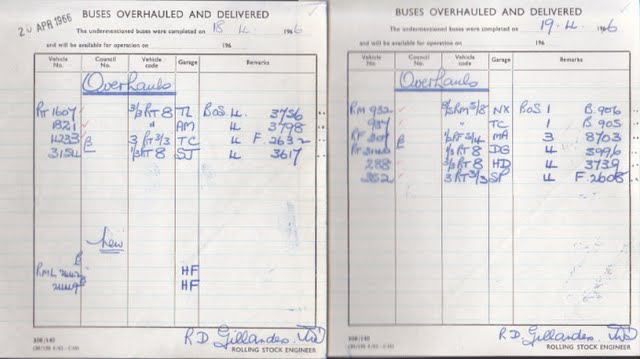 20 APR 1966
BUSES OVERHAULED AND DELIVERED
The undermentioned buses were completed on 18 4. 1966
and will be available for operation on 196
Vehicle No. Council No. Vehicle code Garage Remarks
Overhauls
RT 1607 3/3 RT 8 TL BOS 4. 3756
1821 " AM 4 3798
4233 B 3 RT 3/3 TC 4 F. 2632
3154 1/3 RT 8 SJ 4 3617
New
B
RML HF
HF
R.D. Gillandes.
ROLLING STOCK ENGINEER
BUSES OVERHAULED AND DELIVERED
The undermentioned buses were completed on 19. 4. 1966
and will be available for operation on 196
Vehicle No. Council No. Vehicle code Garage Remarks
Overhauls
RM 932 5/8 NX BOS 1 B. 906
987 " TC 1 B. 905
RF B MA 3 8703
RT 1/3 RT 8 DG 4 3996
288 1/3 RT 8 HD 4 3739
352 3 RT 3/3 SP 4 F. 2608
R.D. Gillandes.
ROLLING STOCK ENGINEER